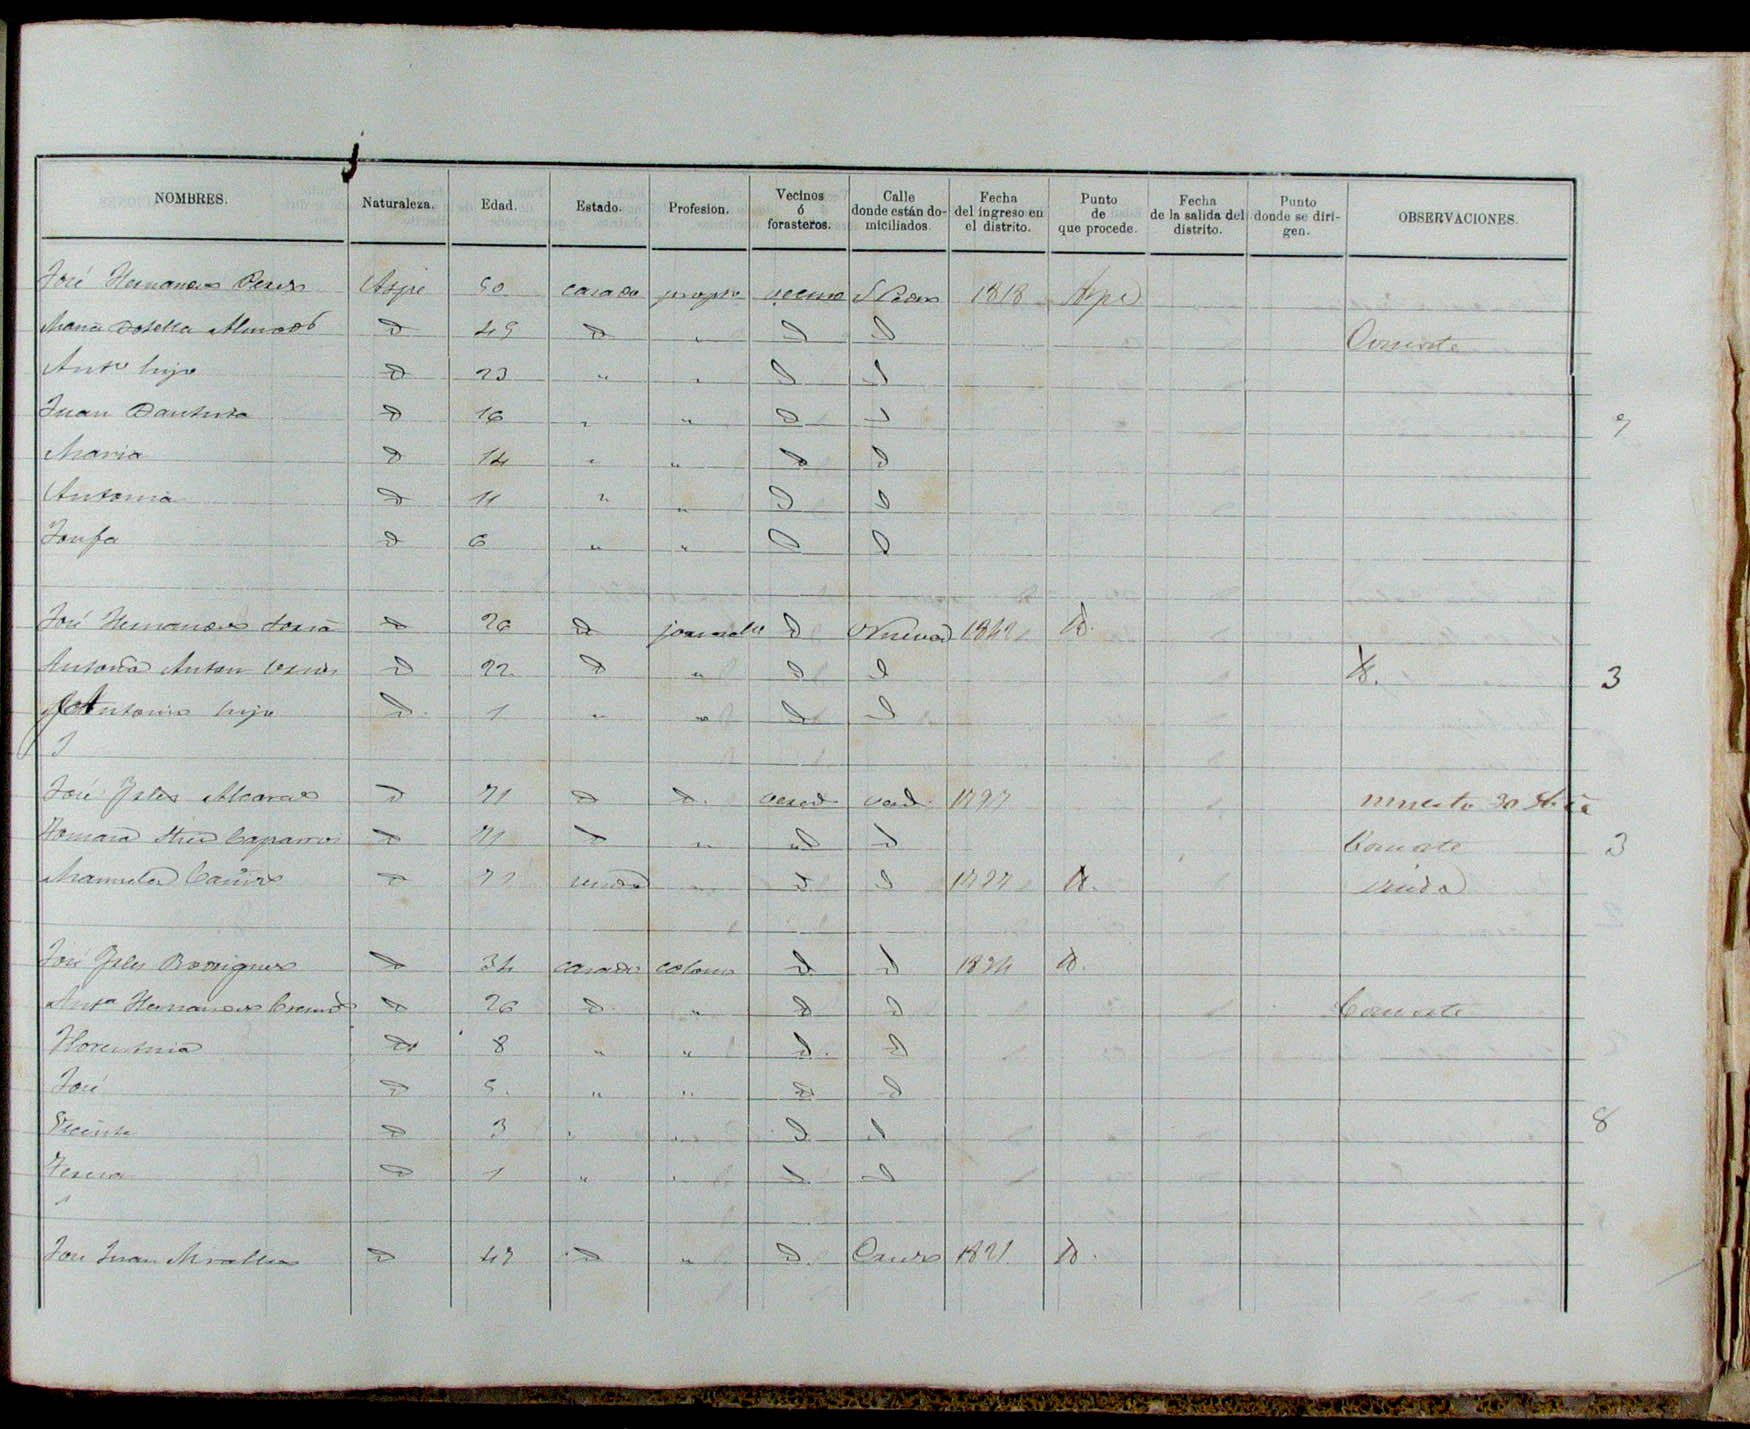 NOMBRES. Naturaleza. Edad. Estado. Profesion. Vecinos ó forasteros. Calle donde están domiciliados. Fecha del ingreso en el distrito. Punto de que procede. Fecha de la salida del distrito. Punto donde se dirigen. OBSERVACIONES.
José Hernandez Perez Aspe 50 casado propio vecino S Pedro 1818 Aspe
Maria Botella Almodob d 49 d " d d Consorte
Antº hijo d 23 " " d d
Juan Bautista d 16 " " d d
7
Maria d 14 " " d d
Antonia d 11 " " d d
Josefa d 6 " " d d
José Hernandez d 26 d d Nueva 1842 d.
Antonia Anton d 22 d " d d d. 3
Antonio hijo d 1 " " d d
José d 71 d d. 1797 muerto 30
d 71 d " d d Consorte 3
Manuela d 72 viuda " d d 1797 d. viuda
José Rodriguez d 34 casado colono d d 1824 d.
Antª Hernandez d 26 d " d d Consorte
Florentina do 8 " " d d
José d 5 " " d d
Vicente d 3 " " d d 8
Teresa d 1 " " d d
José Juan Miralles d 47 d " d 1821 d.